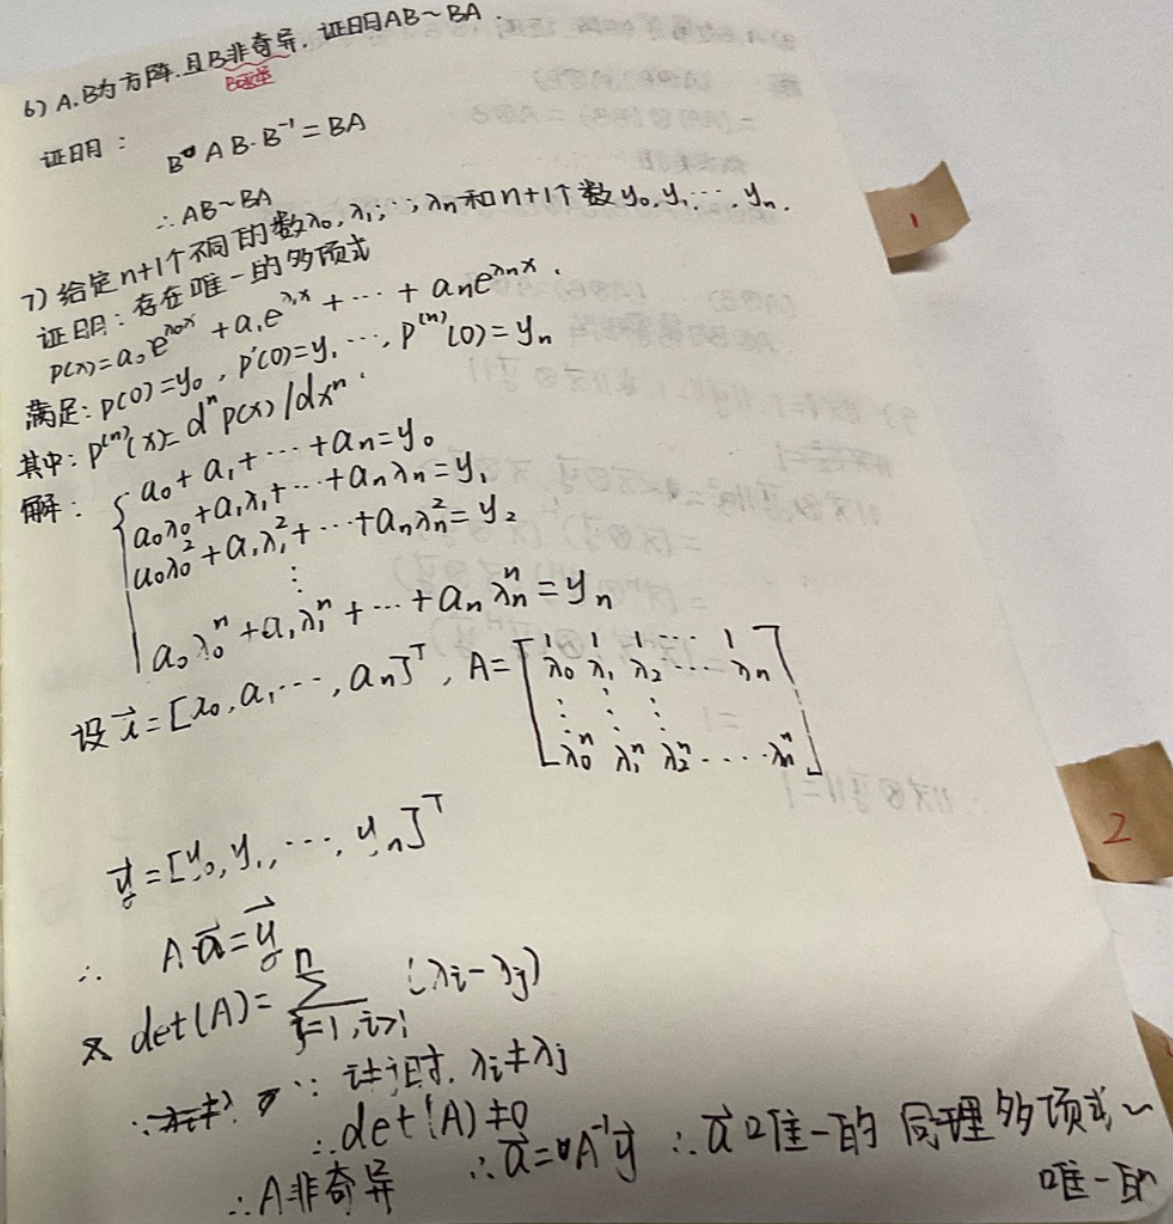 6) A.B为方阵.且B非奇异.证明AB~BA.
B可逆
证明：
B AB·B⁻¹=BA
∴AB~BA
7) 给定n+1个不同的数λ₀,λ₁,…,λn和n+1个数y₀,y₁,…,yn.
证明：存在唯一的多项式
p(x)=a₀e^{λ₀x}+a₁e^{λ₁x}+…+aₙe^{λₙx}.
满足：p(0)=y₀, p'(0)=y₁…, p⁽ⁿ⁾(0)=yₙ
其中：p⁽ⁿ⁾(x)=dⁿp(x)/dxⁿ.
解：
a₀+a₁+…+aₙ=y₀
a₀λ₀+a₁λ₁+…+aₙλₙ=y₁
a₀λ₀²+a₁λ₁²+…+aₙλₙ²=y₂
⋮
a₀λ₀ⁿ+a₁λ₁ⁿ+…+aₙλₙⁿ=yₙ
设 =[a₀,a₁,…,aₙ]ᵀ, A=[1 1 1 … 1
λ₀ λ₁ λ₂ … λₙ
⋮ ⋮ ⋮
λ₀ⁿ λ₁ⁿ λ₂ⁿ …. λₙⁿ]
y⃗=[y₀,y₁,…,yₙ]ᵀ
∴ A·a⃗=y⃗
又 det(A)=∑ⁿ_{j=1,i>j}(λi-λj)
∵ i≠j时.λi≠λj
∴det(A)≠0
∴A非奇异 ∴a⃗=A⁻¹y⃗ ∴a⃗唯一的 同理多项式~
唯一的
1
2